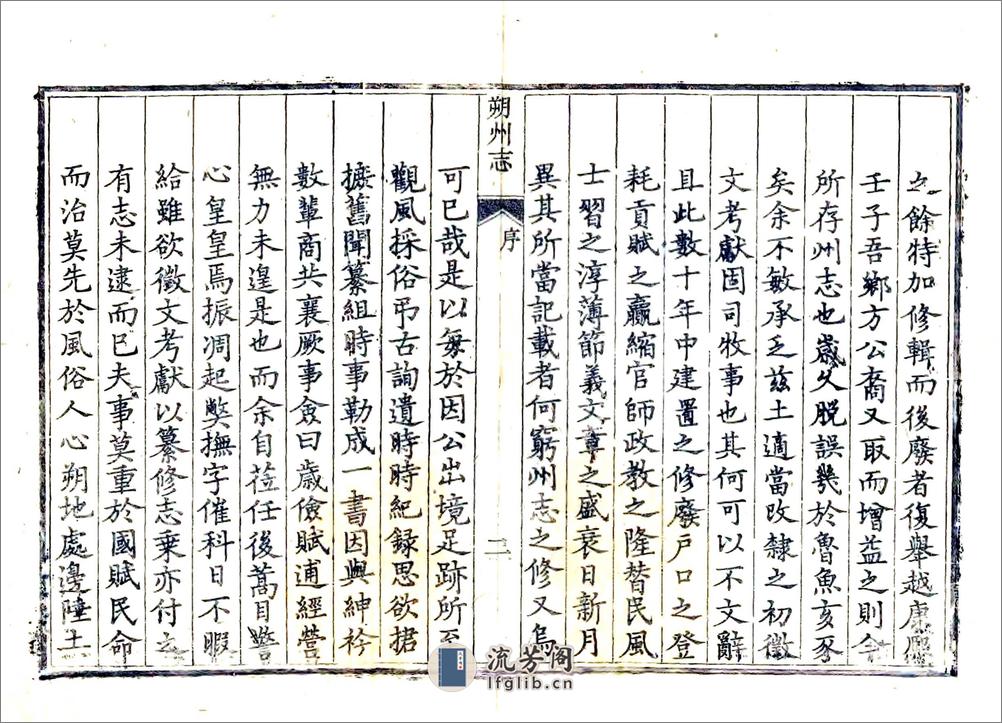 之餘特加修輯而後廢者復舉越康熙
壬子吾鄉方公裔又取而增益之則今
所存州志也歲久脫誤幾於魯魚亥豕
矣余不敏承乏茲土適當改隸之初徵
文考獻固司牧事也其何可以不文辭
且此數十年中建置之修廢戶口之登
耗貢賦之贏縮官師政教之隆替民風
士習之淳薄節義文章之盛衰日新月
異其所當記載者何窮州志之修又烏
朔州志
序
二
可已哉是以每於因公出境足跡所至
觀風採俗弔古詢遺時時紀錄思欲捃
摭舊聞纂組時事勒成一書因與紳衿
數輩商共襄厥事僉曰歲儉賦逋經營
無力未遑是也而余自莅任後蒿目警
心皇皇焉振凋起獘撫字催科日不暇
給雖欲徵文考獻以纂修志乗亦付之
有志未逮而巳夫事莫重於國賦民命
而治莫先於風俗人心朔地處邊陲土
流芳阁
lfglib.cn